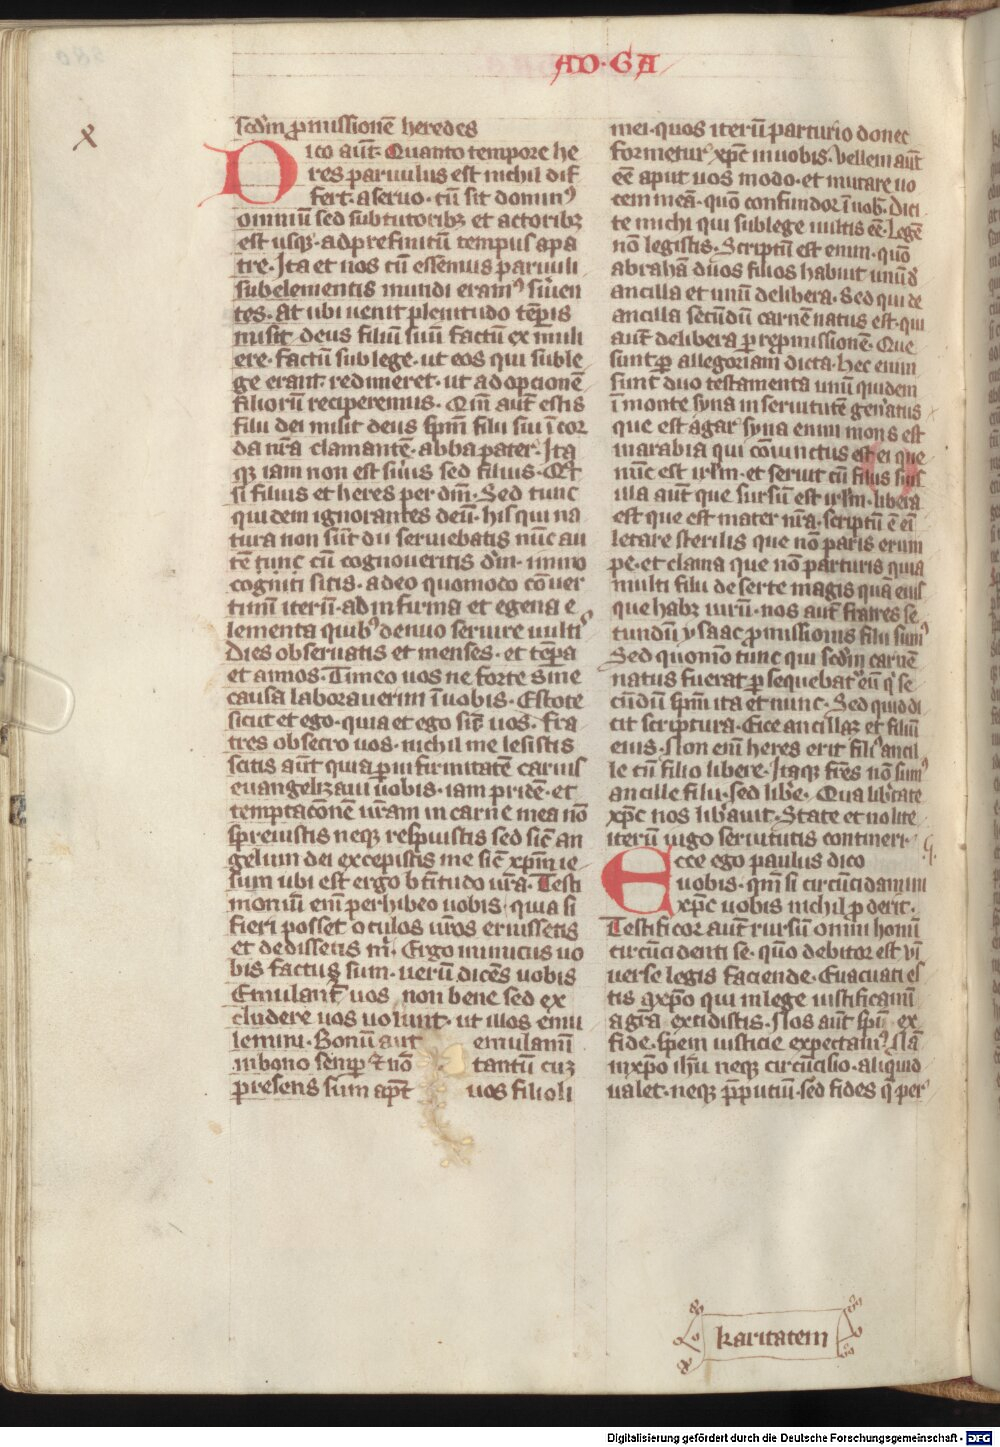 AD·GA
x
scdm ꝓmissionē heredes
Dico aūt· Quanto tempore he
res paruulus est nichil dif
fert· a seruo· cū sit dominꝰ
omniū sed sub tutoribꝫ et actoribꝫ
est usqꝫ· ad prefinitū tempus a pa
tre· Ita et nos cū essemus paruuli
sub elementis mundi eramꝰ suien
tes· At ubi uenit plenitudo tēpis
misit deus filiū suū factū ex muli
ere· factū sub lege· ut eos qui sub le
ge erant redimeret· ut adopcionē
filiorū reciperemus· Qm̄ aūt estis
filii dei misit deus spm̄ filii sui ī cor
da nr̄a clamantē· abba pater· Ita
qꝫ iam non est suus sed filius· Qt
si filius et heres per dm̄· Sed tunc
quidem ignorantes deū· his qui na
tura non sūt dii seruiebatis nūc au
tē tunc cū cognoueritis dm̄· immo
cogniti sitis· a deo quomodo cōuer
timī iterū· ad infirma et egena e
lementa quibꝰ denuo seruire uultis
Dies obseruatis et menses· et tēpa
et annos· Timeo uos ne forte sine
causa laborauerim ī uobis· Estote
sicut et ego· quia et ego sic̄ uos· fra
tres obsecro uos· nichil me lesistis
scitis aūt quia ꝑ infirmitatē carnis
euangelizaui uobis· iam pridē· et
temptacōnē ur̄am in carne mea nō
spreuistis neqꝫ respuistis sed sic̄ an
gelum dei excepistis me sic̄ xpm̄ ie
sum ubi est ergo btītudo ur̄a· Testi
moniū eni ꝑerhibeo uobis· quia si
fieri posset oculos ur̄os eruissetis
et dedissetis m· Ergo inimicus uo
bis factus sum· uerū dicēs uobis
Emulant uos non bene sed ex
cludere uos uolunt· ut illos emu
lemini· Bonū aut emulamī
in bono semp ⁊ nō tantū cuꝫ
presens sum apt uos filioli
mei· quos iterū parturio donec
formetur xpc in uobis· Vellem aūt
eē aput uos modo· et mutare uo
cem meā· quō confundor ī uob· Dici
te michi qui sub lege uultis eē· Legē
nō legistis· Scriptū est enim· quō
abrahā duos filios habuit unū d
ancilla et unū de libera· Sed qui de
ancilla secūdū carnē natus est· qui
aūt de libera ꝑ repmissionē· Que
sunt ꝑ allegoriam dicta· Hec enim
sunt duo testamenta unū quidem
ī monte syna in seruitutē genatus
que est agar syna enim mons est
in arabia qui cōiunctus est ei que
nūc est irlm· et seruit cū filiis suis
illa aūt que sursū est irlm· libera
est que est mater nr̄a· scriptū ē ei
letare sterilis que nō paris erum
pe· et clama que nō parturis quia
multi filii deserte magis quā eius
que habꝫ uirū· nos aūt fratres se
cundū ysaac ꝓmissionis filii sumꝰ
Sed quomō tunc qui scdm carnē
natus fuerat ꝑsequebat eū q se
cūdū spm̄ ita et nunc· Sed quid di
cit scriptura· Eice ancillaꝫ et filiū
eius· Non eni heres erit filiꝰ ancil
le cū filio libere· Itaqꝫ fres nō sumꝰ
ancille filii· sed libe· Qua libtate
xpc nos libauit· State et nolite
iterū iugo seruitutis contineri·
Ecce ego paulus dico
uobis· qm̄ si circūcidamini
xpc uobis nichil ꝓderit·
Testificor aūt rursū omni homī
circūcidenti se· quō debitor est uī
uerse legis faciende· Euacuati es
tis a xpo qui in lege iustificamī
a gra excidistis· Nos aūt spu ex
fide· spem iusticie expectamꝰ· Nā
in xpo ihu neqꝫ circūcisio· aliquid
ualet· neqꝫ ꝑputiū· sed fides q per
karitatem
Digitalisierung gefördert durch die Deutsche Forschungsgemeinschaft - DFG